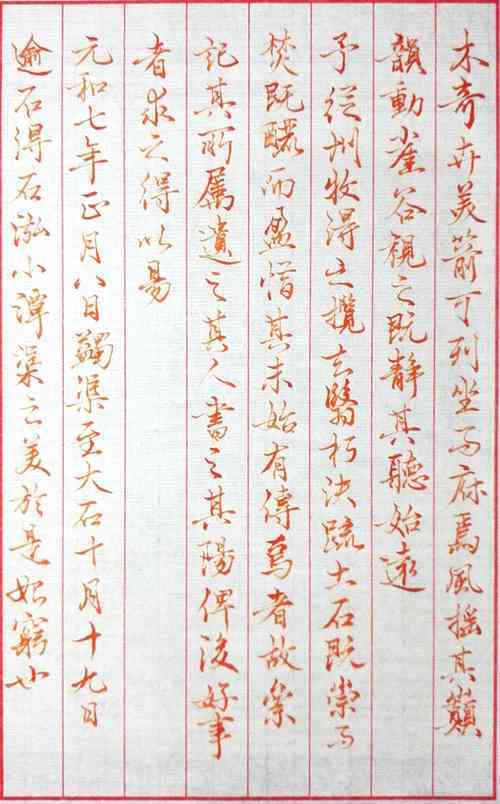 木奇卉美箭可列坐而庥焉風摇其巔
韻動崖谷視之既靜其聽始遠
予從州牧得之攬去翳朽決疏土石既崇而
焚既釃而盈惜其未始有傳焉者故累
記其所屬遺之其人書之其陽俾後好事
者求之得以易
元和七年正月八日蠲渠至大石十月十九日
逾石得石泓小潭渠之美於是始窮也